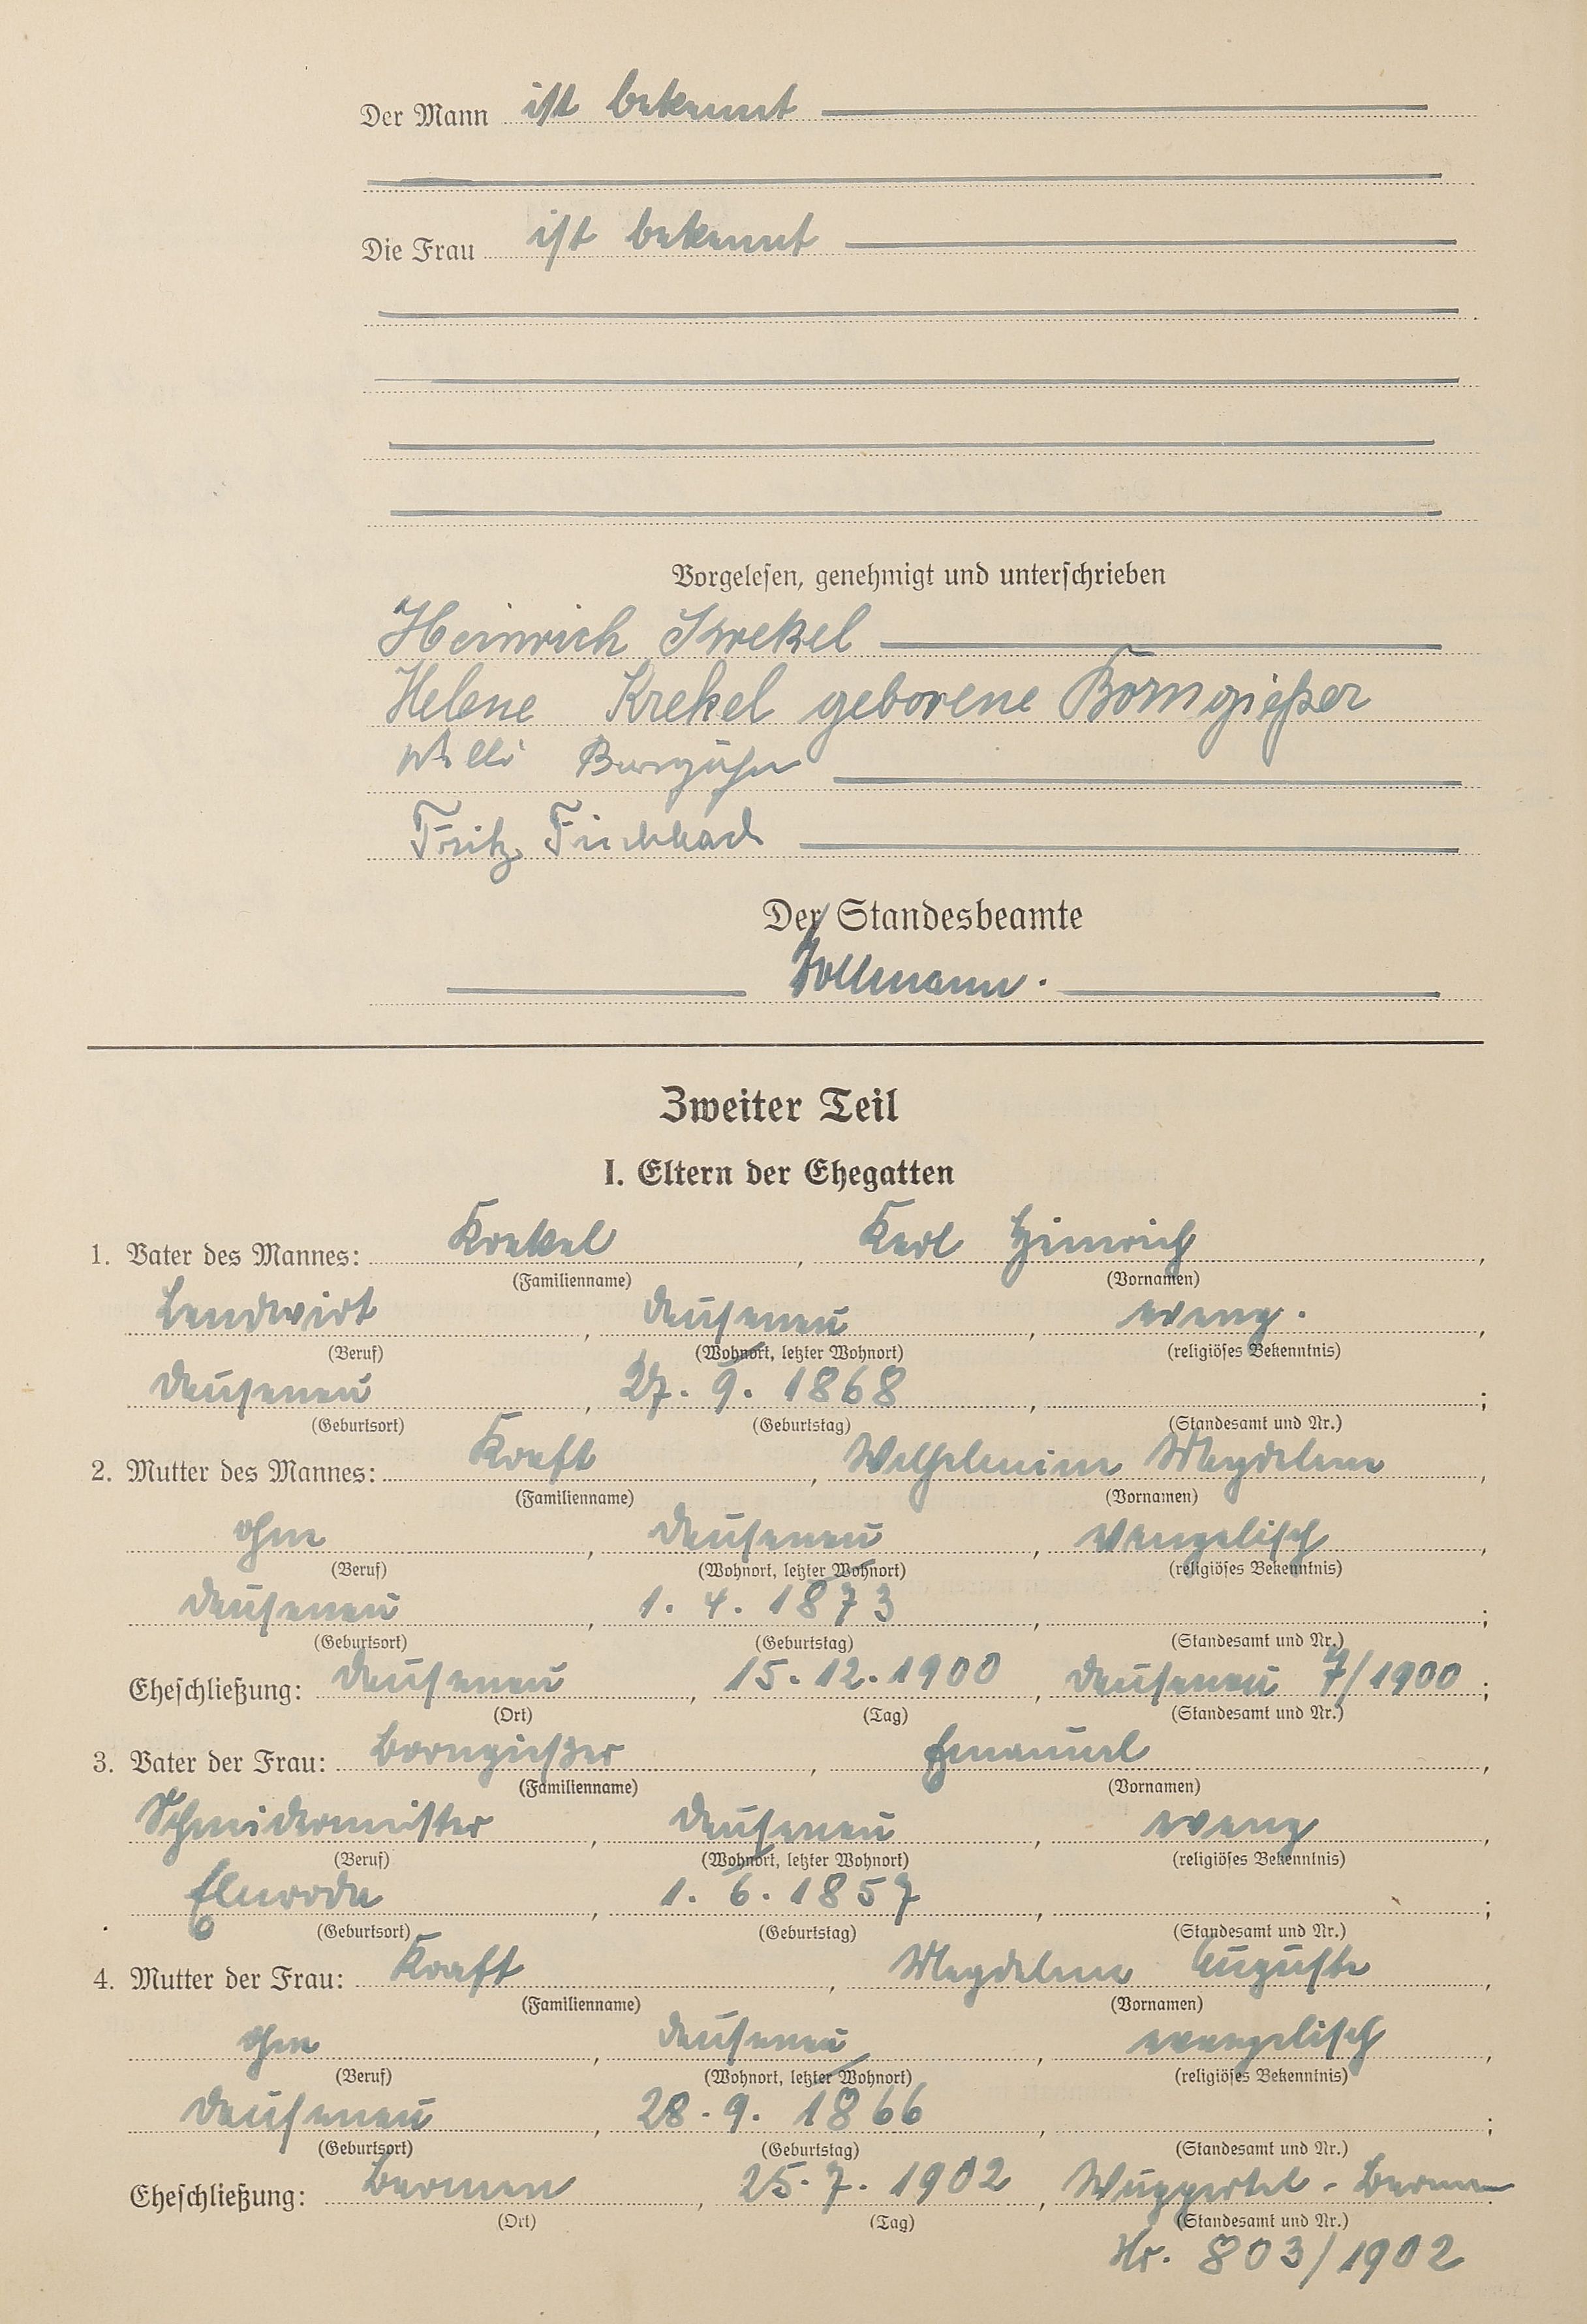 Der Mann ist bekannt
Die Frau ist bekannt
Vorgelesen, genehmigt und unterschrieben
Heinrich Krekel
Helene Krekel geborene Borngießer
Willi
Fritz
Der Standesbeamte
Zweiter Teil
I. Eltern der Ehegatten
1. Vater des Mannes: Krekel, Karl Heinrich,
(Familienname) (Vornamen)
Landwirt, Dausenau, evang.,
(Beruf) (Wohnort, letzter Wohnort) (religiöses Bekenntnis)
Dausenau, 27. 9. 1868, ;
(Geburtsort) (Geburtstag) (Standesamt und Nr.)
2. Mutter des Mannes: Kraft, Wilhelmine Magdalene,
(Familienname) (Vornamen)
ohne, Dausenau, evangelisch,
(Beruf) (Wohnort, letzter Wohnort) (religiöses Bekenntnis)
Dausenau, 1. 4. 1873, ;
(Geburtsort) (Geburtstag) (Standesamt und Nr.)
Eheschließung: Dausenau, 15.12.1900, Dausenau 7/1900;
(Ort) (Tag) (Standesamt und Nr.)
3. Vater der Frau: Borngießer, Emanuel,
(Familienname) (Vornamen)
Schneidermeister, Dausenau, evang,
(Beruf) (Wohnort, letzter Wohnort) (religiöses Bekenntnis)
Elnrode, 1. 6. 1857, ;
(Geburtsort) (Geburtstag) (Standesamt und Nr.)
4. Mutter der Frau: Kraft, Magdalene Auguste,
(Familienname) (Vornamen)
ohne, Dausenau, evangelisch,
(Beruf) (Wohnort, letzter Wohnort) (religiöses Bekenntnis)
Dausenau, 28. 9. 1866, ;
(Geburtsort) (Geburtstag) (Standesamt und Nr.)
Eheschließung: Barmen, 25. 7. 1902, Wuppertal-Barmen
(Ort) (Tag) (Standesamt und Nr.)
Nr. 803/1902